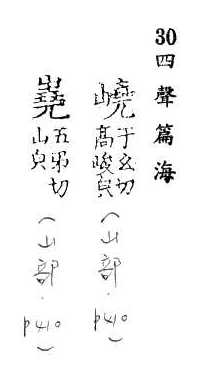 30四聲篇海
嶢于玄切
高峻皃
（山部．p410）
嶤五弔切
山皃
（山部．p410）